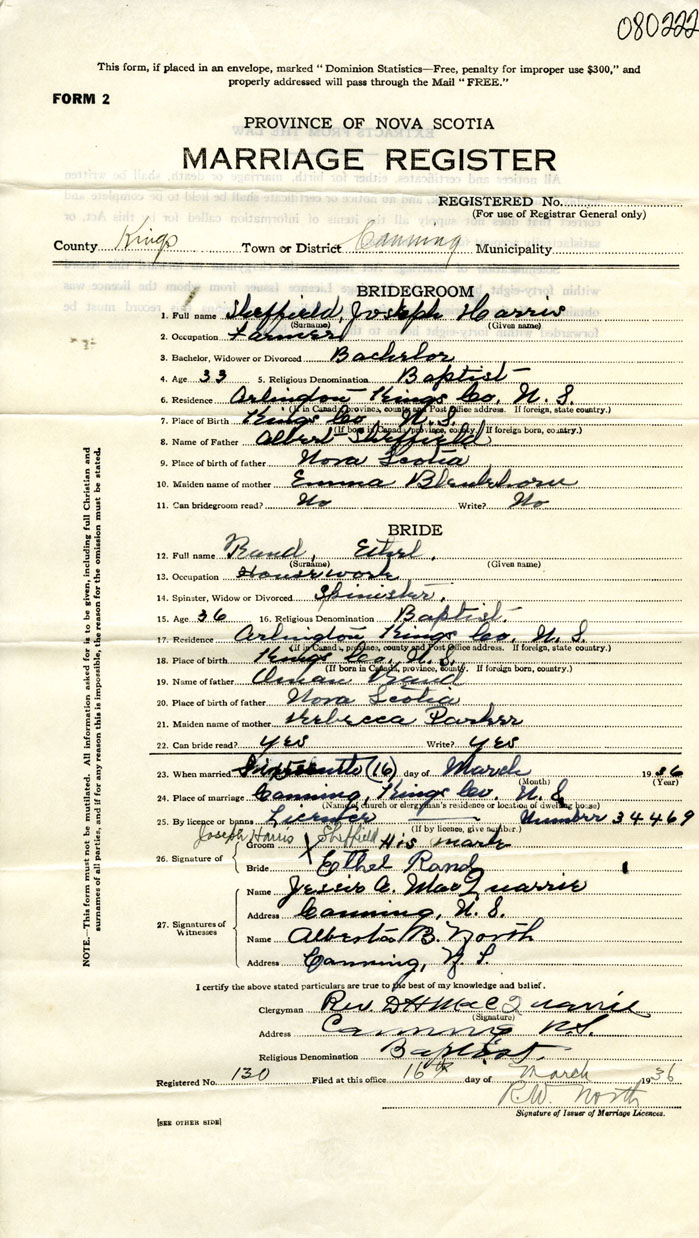 080222
This form, if placed in an envelope, marked "Dominion Statistics—Free, penalty for improper use $300," and
properly addressed will pass through the Mail "FREE."
FORM 2
PROVINCE OF NOVA SCOTIA
MARRIAGE REGISTER
REGISTERED No.
(For use of Registrar General only)
County Kings Town or District Canning Municipality
BRIDEGROOM
1. Full name Sheffield, Joseph Harris
(Surname) (Given name)
2. Occupation Farmer
3. Bachelor, Widower or Divorced Bachelor
4. Age 33 5. Religious Denomination Baptist
6. Residence Arlington Kings Co, N.S.
(If in Canada, province, county and Post Office address. If foreign, state country.)
7. Place of Birth Kings Co, N.S.
(If born in Canada, province, county. If foreign born, country.)
8. Name of Father Albert Sheffield
9. Place of birth of father Nova Scotia
10. Maiden name of mother Emma Blenkhorn
11. Can bridegroom read? No Write? No
BRIDE
12. Full name Rand, Ethel,
(Surname) (Given name)
13. Occupation Housework
14. Spinster, Widow or Divorced Spinister.
15. Age 36 16. Religious Denomination Baptist.
17. Residence Arlington Kings Co, N.S.
(If in Canada, province, county and Post Office address. If foreign, state country.)
18. Place of birth Kings Co, N.S.
(If born in Canada, province, county. If foreign born, country.)
19. Name of father Rand
20. Place of birth of father Nova Scotia
21. Maiden name of mother Rebecca Parker
22. Can bride read? yes Write? yes
23. When married Sixteenth (16) day of March 1936
(Month) (Year)
24. Place of marriage Canning, Kings Co, N.S
(Name of church or clergyman's residence or location of dwelling house)
25. By licence or banns Licence Number 34469
(If by licence, give number.)
Joseph Harris Sheffield
26. Signature of Groom X His mark
Bride Ethel Rand
27. Signatures of Witnesses
Name Jessie A. MacQuarrie
Address Canning, N.S.
Name Alberta B. North
Address Canning, N.S.
I certify the above stated particulars are true to the best of my knowledge and belief.
Clergyman Rev. D H MacQuarrie
(Signature)
Address Canning N.S.
Religious Denomination Baptist.
Registered No. 130 Filed at this office 16th day of March 1936
R.W. North
Signature of Issuer of Marriage Licences.
[SEE OTHER SIDE]
NOTE.—This form must not be mutilated. All information asked for is to be given, including full Christian and
surnames of all parties, and if for any reason this is impossible, the reason for the omission must be stated.